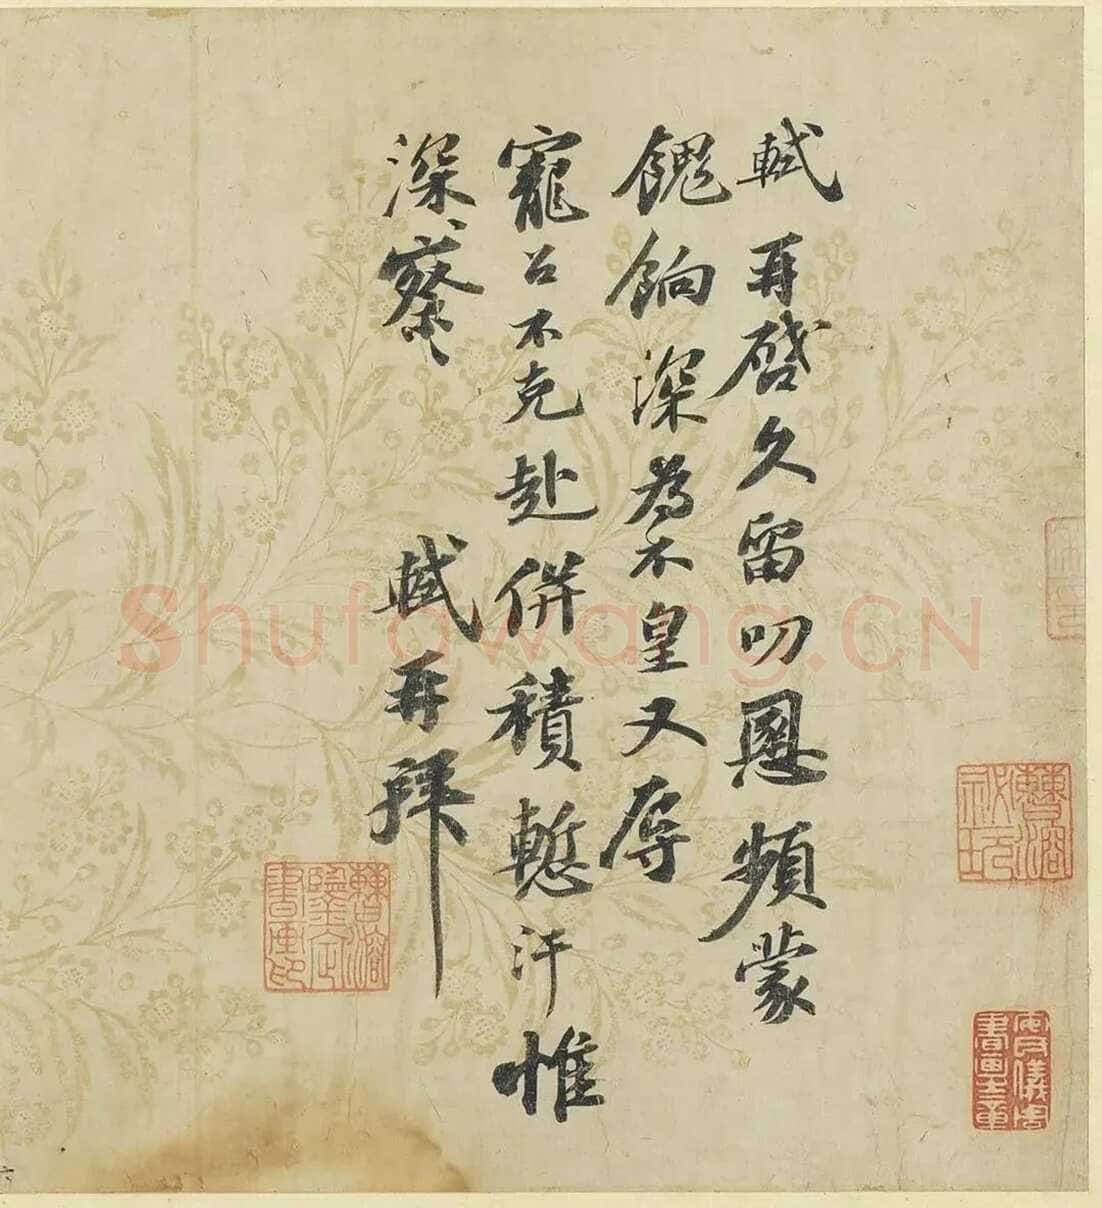 軾再啓久留叨恩頻蒙
餽餉深為不皇又辱
寵召不克赴併積慙汗惟
深察
軾再拜
Shufawang.CN
安儀周書畫之章